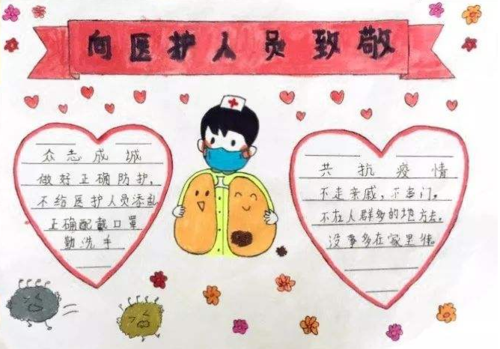 向医护人员致敬
众志成城
做好正确防护，
不给医护人员添乱
正确配戴口罩
勤洗手
共抗疫情
不走亲戚，不串门。
不在人群多的地方去。
没事多在家里待